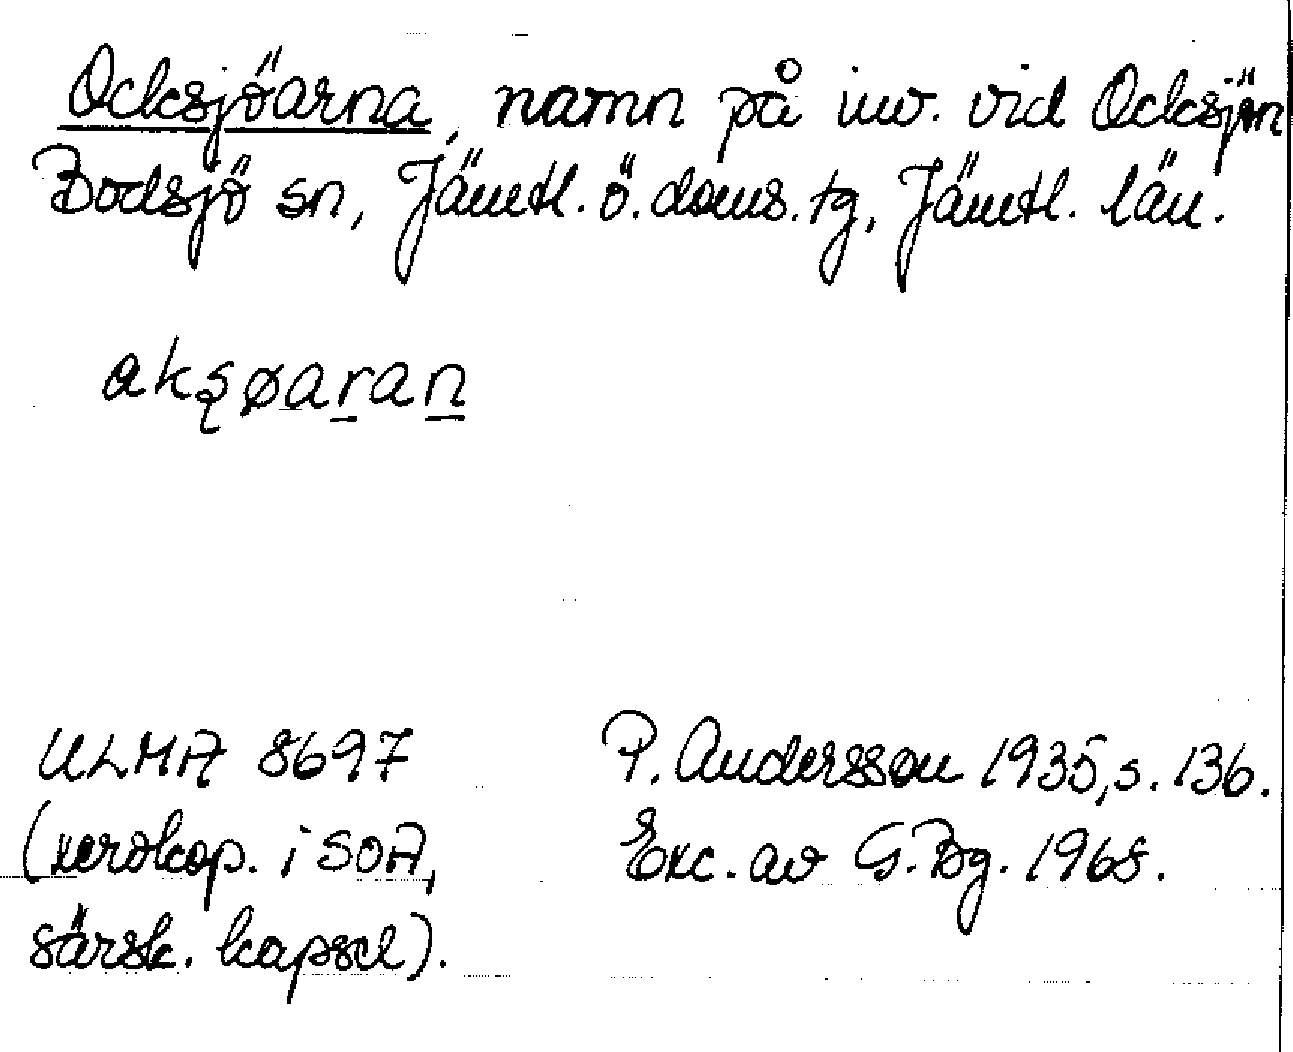 Ocksjöarna, namn på inv. vid Ocksjön
Bodsjö sn, Jämtl. ö. doms. tg, Jämtl. län.
akʂøaran
ULMA 8697
(xerokop. i SOA,
särsk. kapsel).
P. Andersson 1935, s. 136.
Exc. av G. Bg. 1968.